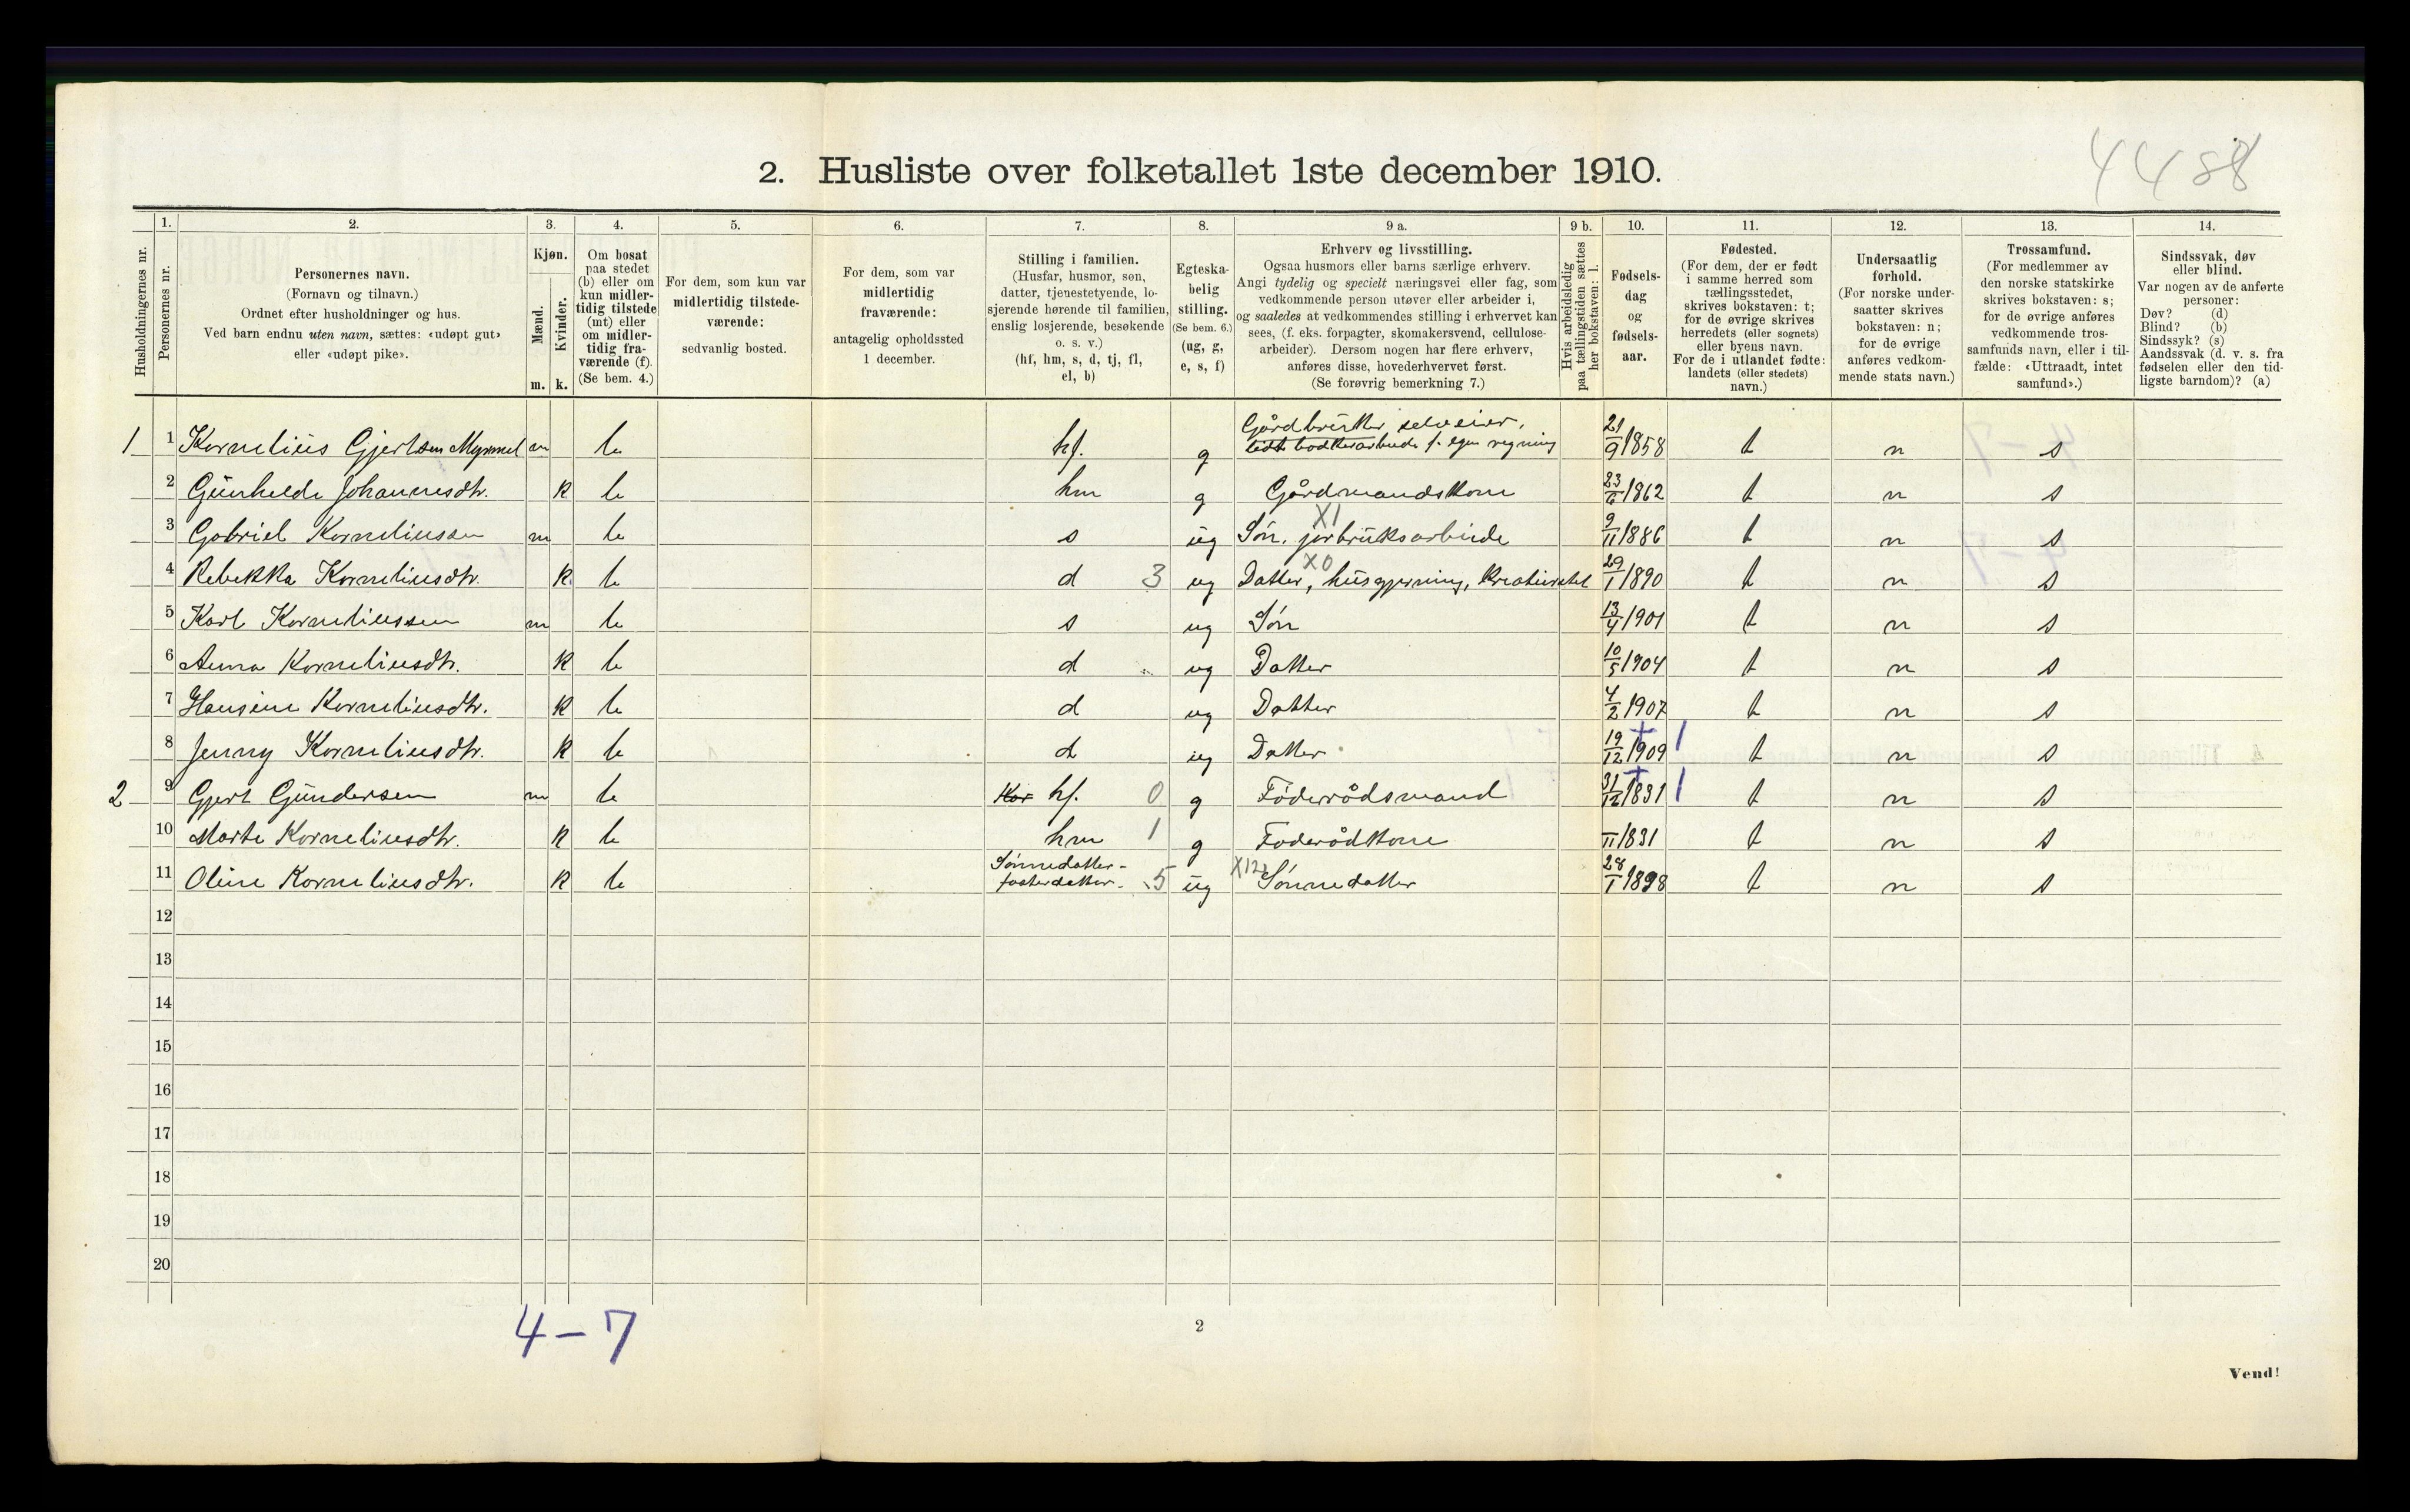 4488
2. Husliste over folketallet 1ste december 1910.
1. 2. 3. 4. 5. 6. 7. 8. 9 a. 9 b. 10. 11. 12. 13. 14.
Husholdningernes nr.
Personernes nr.
Personernes navn.
(Fornavn og tilnavn.)
Ordnet efter husholdninger og hus.
Ved barn endnu uten navn, sættes: «udøpt gut»
eller «udøpt pike».
Kjøn.
Mænd.
Kvinder.
m. k.
Om bosat
paa stedet
(b) eller om
kun midler-
tidig tilstede
(mt) eller
om midler-
tidig fra-
værende (f).
(Se bem. 4.)
For dem, som kun var
midlertidig tilstede-
værende:
sedvanlig bosted.
For dem, som var
midlertidig
fraværende:
antagelig opholdssted
1 december.
Stilling i familien.
(Husfar, husmor, søn,
datter, tjenestetyende, lo-
sjerende hørende til familien,
enslig losjerende, besøkende
o. s. v.)
(hf, hm, s, d, tj, fl,
el, b)
Egteska-
belig
stilling.
(Se bem. 6.)
(ug, g,
e, s, f)
Erhverv og livsstilling.
Ogsaa husmors eller barns særlige erhverv.
Angi tydelig og specielt næringsvei eller fag, som
vedkommende person utøver eller arbeider i,
og saaledes at vedkommendes stilling i erhvervet kan
sees, (f. eks. forpagter, skomakersvend, cellulose-
arbeider). Dersom nogen har flere erhverv,
anføres disse, hovederhvervet først.
(Se forøvrig bemerkning 7.)
Hvis arbeidsledig
paa tællingstiden sættes
her bokstaven: l.
Fødsels-
dag
og
fødsels-
aar.
Fødested.
(For dem, der er født
i samme herred som
tællingsstedet,
skrives bokstaven: t;
for de øvrige skrives
herredets (eller sognets)
eller byens navn.
For de i utlandet fødte:
landets (eller stedets)
navn.)
Undersaatlig
forhold.
(For norske under-
saatter skrives
bokstaven: n;
for de øvrige
anføres vedkom-
mende stats navn.)
Trossamfund.
(For medlemmer av
den norske statskirke
skrives bokstaven: s;
for de øvrige anføres
vedkommende tros-
samfunds navn, eller i til-
fælde: «Uttraadt, intet
samfund».)
Sindssvak, døv
eller blind.
Var nogen av de anførte
personer:
Døv? (d)
Blind? (b)
Sindssyk? (s)
Aandssvak (d. v. s. fra
fødselen eller den tid-
ligste barndom)? (a)
Gårdbruker selveier,
1 1 Kornelius Gjertsen Myrmel m b hf. g bødkerarbeide f. egen regning 21/9 1858 t n s
2 Gunhilde Johannesdtr. k b hm g Gårdmandskone 23/6 1862 t n s
X1
3 Gabriel Korneliussen m b s ug Søn, jorbruksarbeide 9/11 1886 t n s
X0
4 Rebekka Korneliusdtr. k b d 3 ug Datter, husgjerning, kreaturstel 29/1 1890 t n s
5 Karl Korneliussen m b s ug Søn 13/4 1901 t n s
6 Anna Korneliusdtr. k b d ug Datter 10/5 1904 t n s
7 Hansine Korneliusdtr. k b d ug Datter 4/2 1907 t n s
8 Jenny Korneliusdtr. k b d ug Datter 19/12 1909 + 1 t n s
2 9 Gjert Gundersen m b Kor hf. 0 g Föderrådsmand 31/12 1831 + 1 t n s
10 Marte Korneliusdtr. k b hm 1 g Föderådkone 11 1831 t n s
Sønnedatter-
11 Oline Korneliusdtr. k b fosterdatter. 5 ug X12 Sønnedatter 28/1 1898 t n s
12
13
14
15
16
17
18
19
20
4-7
2
Vend!